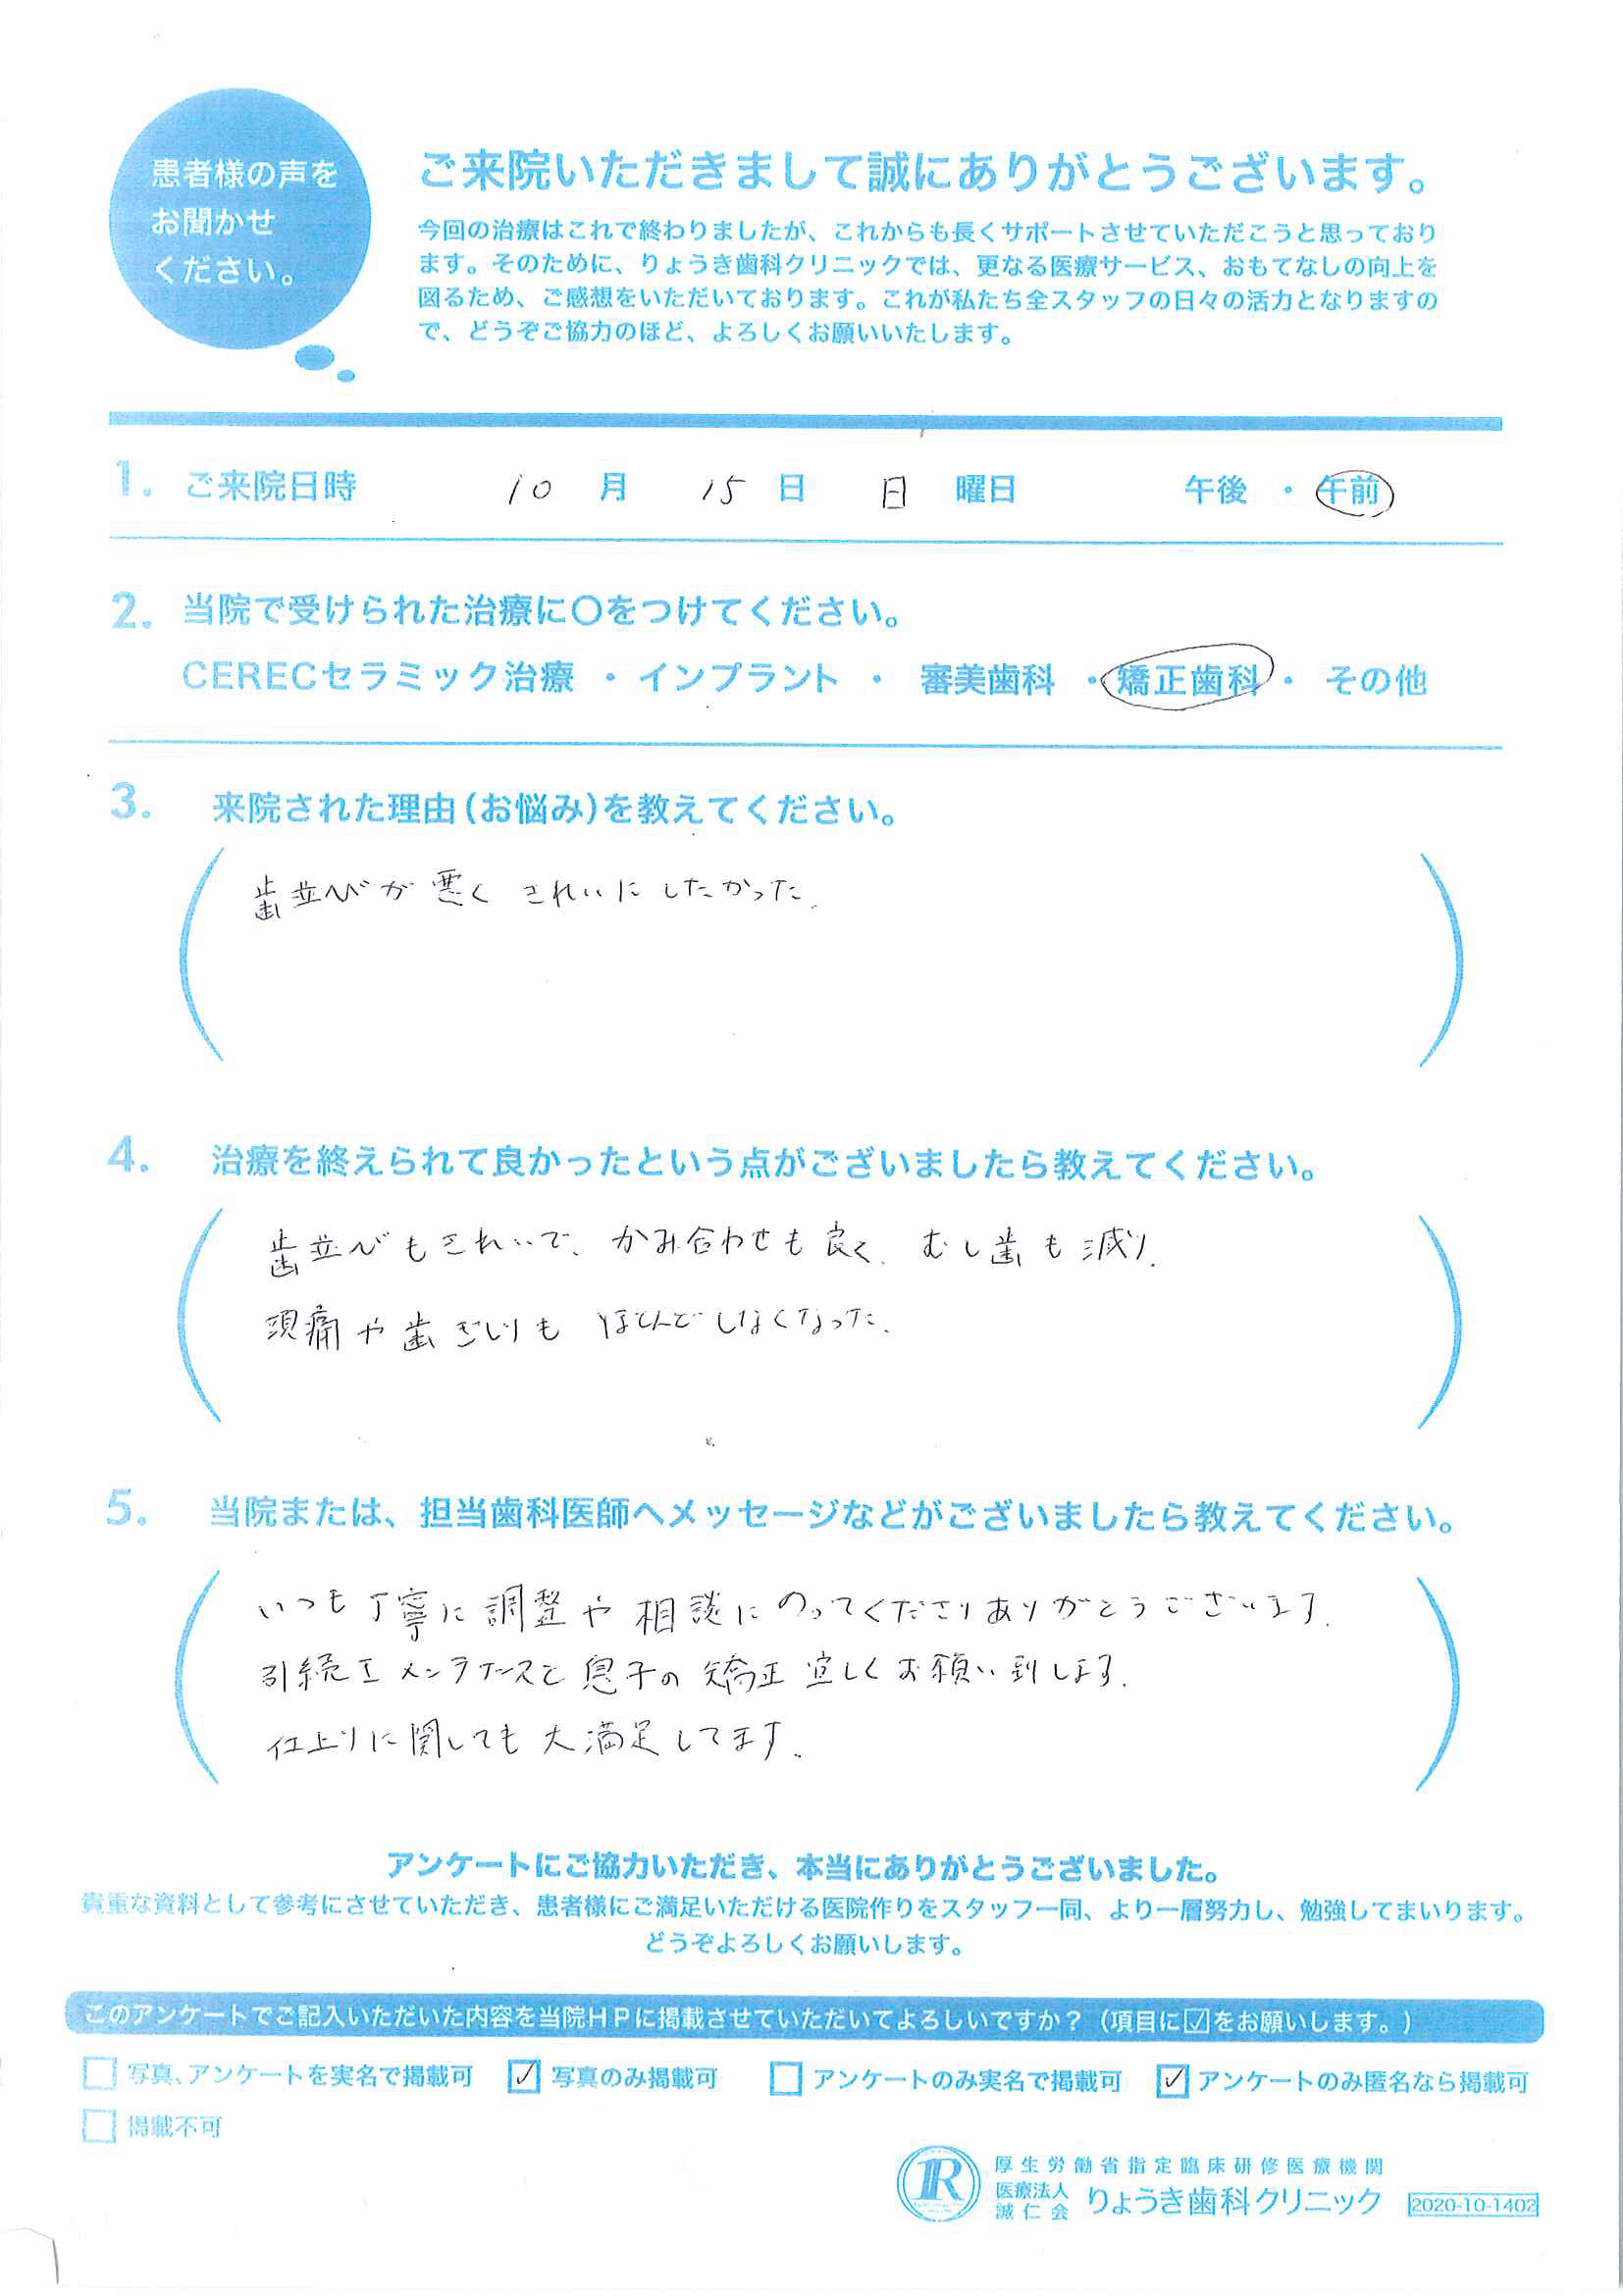 患者様の声を
お聞かせ
ください。
ご来院いただきまして誠にありがとうございます。
今回の治療はこれで終わりましたが、これからも長くサポートさせていただこうと思っており
ます。そのために、りょうき歯科クリニックでは、更なる医療サービス、おもてなしの向上を
図るため、ご感想をいただいております。これが私たち全スタッフの日々の活力となりますの
で、どうぞご協力のほど、よろしくお願いいたします。
1. ご来院日時 10 月 15 日 日 曜日 午後 ・ 午前
2. 当院で受けられた治療に○をつけてください。
CERECセラミック治療 ・ インプラント ・ 審美歯科 ・ 矯正歯科 ・ その他
3. 来院された理由(お悩み)を教えてください。
歯並びが悪く きれいにしたかった。
4. 治療を終えられて良かったという点がございましたら教えてください。
歯並びもきれいで、かみ合わせも良く、むし歯も減り、
頭痛や歯ぎしりも ほとんどしなくなった。
5. 当院または、担当歯科医師へメッセージなどがございましたら教えてください。
いつも丁寧に調整や相談にのってくださりありがとうございます。
引続きメンテナンスと息子の矯正宜しくお願い致します。
仕上りに関しても大満足してます。
アンケートにご協力いただき、本当にありがとうございました。
貴重な資料として参考にさせていただき、患者様にご満足いただける医院作りをスタッフ一同、より一層努力し、勉強してまいります。
どうぞよろしくお願いします。
このアンケートでご記入いただいた内容を当院HPに掲載させていただいてよろしいですか？（項目に☑をお願いします。）
☐ 写真、アンケートを実名で掲載可 ☑ 写真のみ掲載可 ☐ アンケートのみ実名で掲載可 ☑ アンケートのみ匿名なら掲載可
☐ 掲載不可
厚生労働省指定臨床研修医療機関
医療法人 誠仁会 りょうき歯科クリニック 2020-10-1402